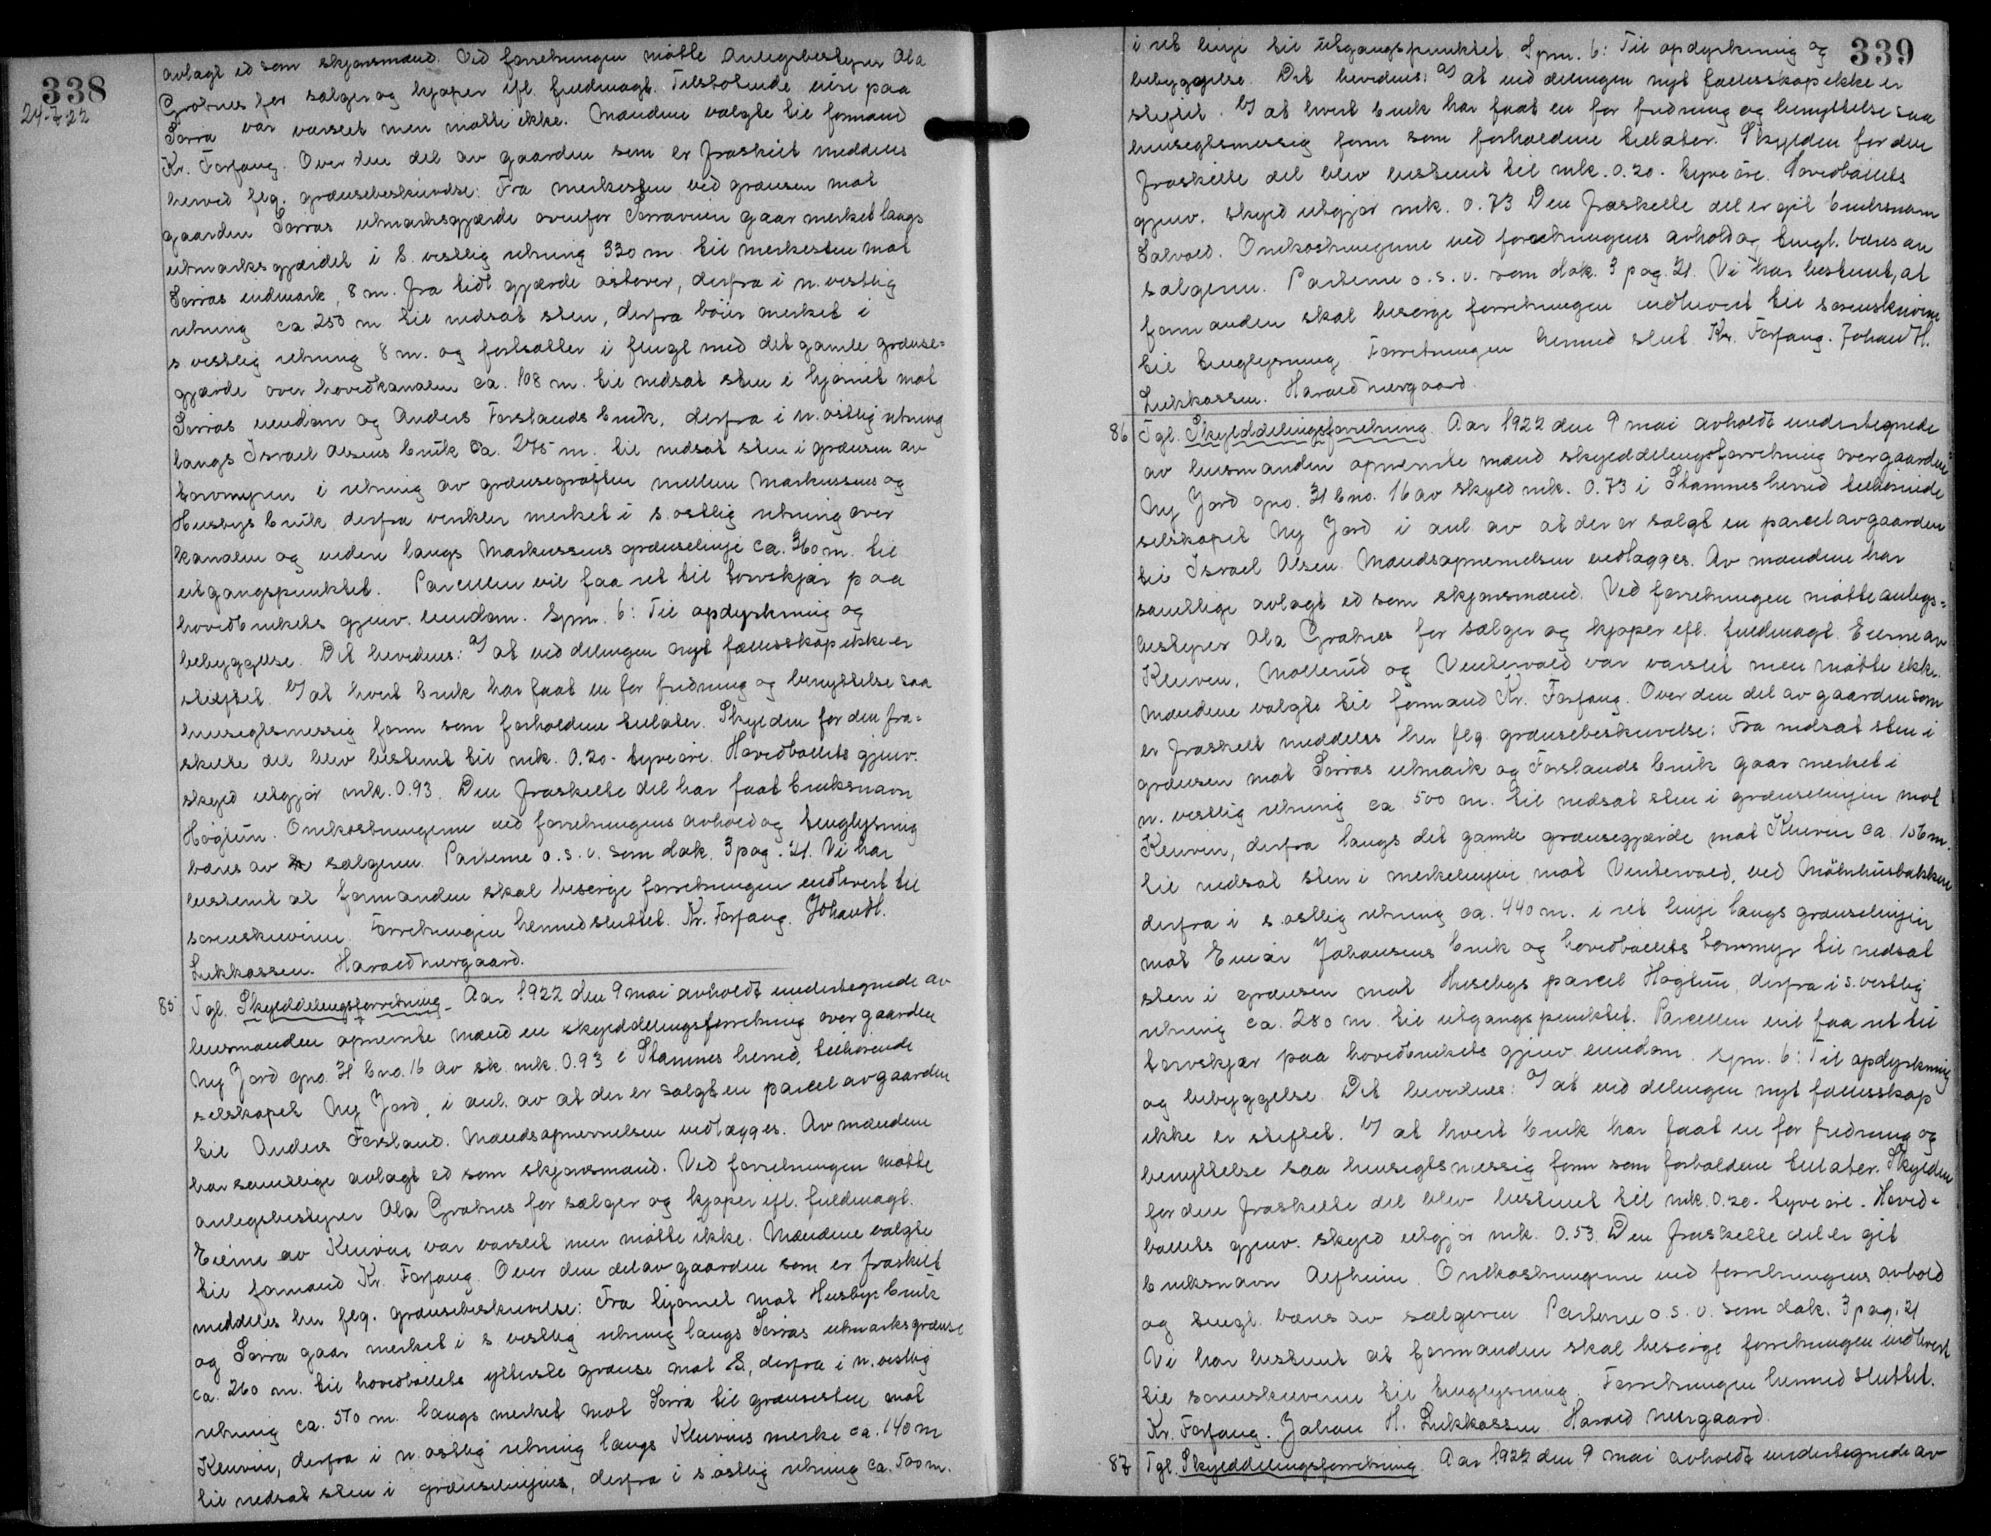 338
24-7-22
avlagt ed som skjønsmænd. Ved forretningen møtte Anlegsbestyrer Ola
Grøtnes for sælger og kjøper ifl. fuldmagt. Tilstøtende eiere paa
Sørra var varslet men møtte ikke. Mændene valgte til formand
Kr. Forfang. Over den del av gaarden som er fraskilt meddeles
herved flg. grænsebeskrivelse: Fra merkesten ved grænsen mot
gaarden Sørras utmarksgjærde ovenfor Sørraveien gaar merket langs
utmarksgjærdet i S. vestlig retning 330 m. til merkesten mot
Sørras indmark, 8 m. fra tidt gjærde østover, derfra i n. vestlig
retning ca 250 m til nedsat sten, derfra bøier merket i
s vestlig retning 8 m. og fortsætter i flugt med det gamle grænse-
gjærde over hovedkanalen ca. 108 m. til nedsat sten i hjørnet mot
Sørras eiendom og Anders Forslands bruk, derfra i n. østlig retning
langs Israel Olsens bruk ca. 275 m. til nedsat sten i grænsen av
torvmyren i retning av grænsegrøften mellem Markussens og
Husbys bruk derfra vinkler merket i s. østlig retning over
kanalen og videre langs Markussens grænselinje ca. 360 m. til
utgangspunktet. Parcellen vil faa ret til torvskjær paa
hovedbrukets gjenv. eiendom. Spm. 6: Til opdyrkning og
bebyggelse. Det bevidnes: a/ at ved delingen nyt fællesskap ikke er
stiftet. b/ at hvert bruk har faat en for fredning og benyttelse saa
hensigtsmessig form som forholdene tillater. Skylden for den fra-
skilte del blev bestemt til mk. 0.20 - tyve øre. Hovedbøllets gjenv.
skyld utgjør mk. 0.93. Den fraskilte del har faat bruksnavn
Høgtun. Omkostningerne ved forretningens avhold og tinglysning
bæres av sælgeren. Parterne o.s.v. som dok. 3 pag. 21. Vi har
bestemt at formanden skal besørge forretningen indlevert til
sorenskriveren. Forretningen hermed sluttet. Kr. Forfang. Johan H.
Lukkassen. Harald Nergaard.
85 Tgl. Skylddelingsforretning. Aar 1922 den 9 mai avholdt undertegnede av
lensmanden opnævnte mænd en skylddelingsforretning over gaarden
Ny Jord gno. 31 bno. 16 av sk. mk. 0.93 i Stamnes herred, tilhørende
selskapet Ny Jord, i anl. av at der er solgt en parcel av gaarden
til Anders Forsland. Mændsopnævnelsen vedlægges. Av mændene
har samtlige avlagt ed som skjønsmænd. Ved forretningen møtte
anlegsbestyrer Ola Grøtnes for sælger og kjøper ifl. fuldmagt.
Eierne av Kleivin var varslet men møtte ikke. Mændene valgte
til formand Kr. Forfang. Over den del av gaarden som er fraskilt
meddeles her flg. grænsebeskrivelse: Fra hjørnet mot Husbys bruk
og Sørra gaar merket i s vestlig retning langs Sørras utmarksgrænse
ca. 260 m. til hovedbøllets ytterste grænse mot S, derfra i n. vestlig
retning ca. 570 m. langs merket mot Sørra til grænsesten mot
Kleivin, derfra i n. østlig retning langs Kleivins merke ca. 140 m
til nedsat sten i grænselinjen, derfra i s østlig retning ca. 500 m.
339
i ret linje til utgangspunktet. Spm. 6: Til opdyrkning og
bebyggelse. Det bevidnes: a/ at ved delingen nyt fællesskap ikke er
stiftet. b/ at hvert bruk har faat en for fredning og benyttelse saa
hensigtsmessig form som forholdene tillater. Skylden for den
fraskilte del blev bestemt til mk. 0.20 - tyve øre. Hovedbøllets
gjenv. skyld utgjør mk. 0.73 Den fraskilte del er git bruksnavn
Solvold. Omkostningerne ved forretningens avhold og tingl. bæres av
sælgeren. Parterne o.s.v. som dok. 3 pag. 21. Vi har bestemt, at
formanden skal besørge forretningen indlevert til sorenskriveren
til tinglysning. Forretningen hermed slut. Kr. Forfang. Johan H.
Lukkassen. Harald Nergaard.
86 Tgl. Skylddelingsforretning. Aar 1922 den 9 mai avholdt undertegnede
av lensmanden opnævnte mænd skylddelingsforretning over gaarden
Ny Jord gno. 31 bno. 16 av skyld mk. 0.73 i Stamnes herred tilhørende
selskapet Ny Jord i anl. av at der er solgt en parcel av gaarden
til Israel Olsen. Mændsopnævnelsen vedlægges. Av mændene har
samtlige avlagt ed som skjønsmænd. Ved forretningen møtte anlegs-
bestyrer Ola Grøtnes for sælger og kjøper ifl. fuldmagt. Eierne av
Kleiven, Møllerud og Vintervold var varslet men møtte ikke.
Mændene valgte til formand Kr. Forfang. Over den del av gaarden som
er fraskilt meddeles her flg. grænsebeskrivelse: Fra nedsat sten i
grænsen mot Sørras utmark og Forslands bruk gaar merket i
n. vestlig retning ca. 500 m. til nedsat sten i grænselinjen mot
Kleivin, derfra langs det gamle grænsegjærde mot Kleivin ca. 156 m.
til nedsat sten i merkelinjen mot Vintervold, ved Mølnhusbakken
derfra i s. østlig retning ca. 440 m. i ret linje langs grænselinjen
mot Einar Johansens bruk og hovedbøllets torvmyr til nedsat
sten i grænsen mot Husebys parcel Høgtun, derfra i s. vestlig
retning ca. 280 m. til utgangspunktet. Parcellen vil faa ret til
torvskjær paa hovedbrukets gjenv. eiendom. Spm. 6: Til opdyrkning
og bebyggelse. Det bevidnes: a/ at ved delingen nyt fællesskap
ikke er stiftet. b/ at hvert bruk har faat en for fredning og
benyttelse saa hensigtsmessig form som forholdene tillater. Skylden
for den fraskilte del blev bestemt til mk. 0.20 - tyve øre. Hoved-
bøllets gjenv. skyld utgjør mk. 0.53. Den fraskilte del er git
bruksnavn Alfheim. Omkostningerne ved forretningens avhold
og tingl. bæres av sælgeren. Parterne o.s.v. som dok. 3 pag. 21
Vi har bestemt at formanden skal besørge forretningen indlevert
til sorenskriveren til tinglysning. Forretningen hermed sluttet.
Kr. Forfang. Johan H. Lukkassen Harald Nergaard.
87 Tgl. Skylddelingsforretning. Aar 1922 den 9 mai avholdt undertegnede av